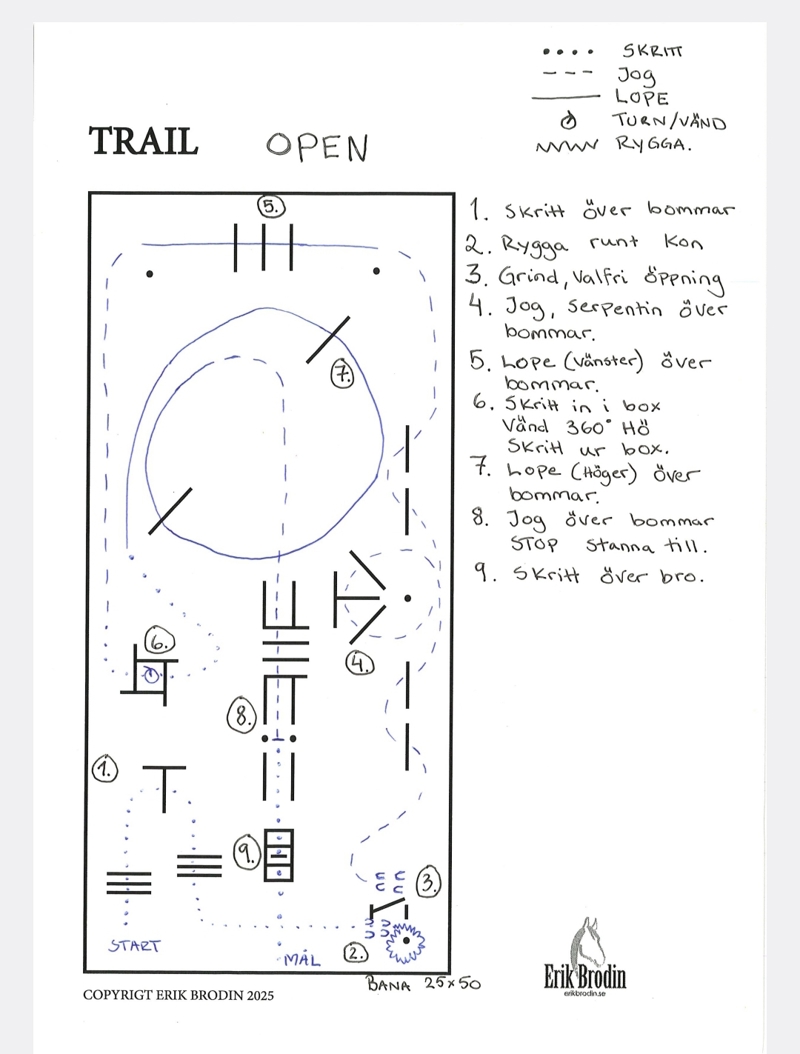 SKRITT
JOG
LOPE
TURN/VÄND
RYGGA.
TRAIL OPEN
1. Skritt över bommar
2. Rygga runt kon
3. Grind, Valfri öppning
4. Jog, Serpentin över
bommar.
5. Lope (Vänster) över
bommar.
6. Skritt in i box
Vänd 360° Hö
Skritt ur box.
7. Lope (Höger) över
bommar.
8. Jog över bommar
STOP stanna till.
9. Skritt över bro.
5.
7.
6.
4.
8.
1.
9.
3.
START
2.
MÅL
BANA 25x50
COPYRIGT ERIK BRODIN 2025
Erik Brodin
erikbrodin.se